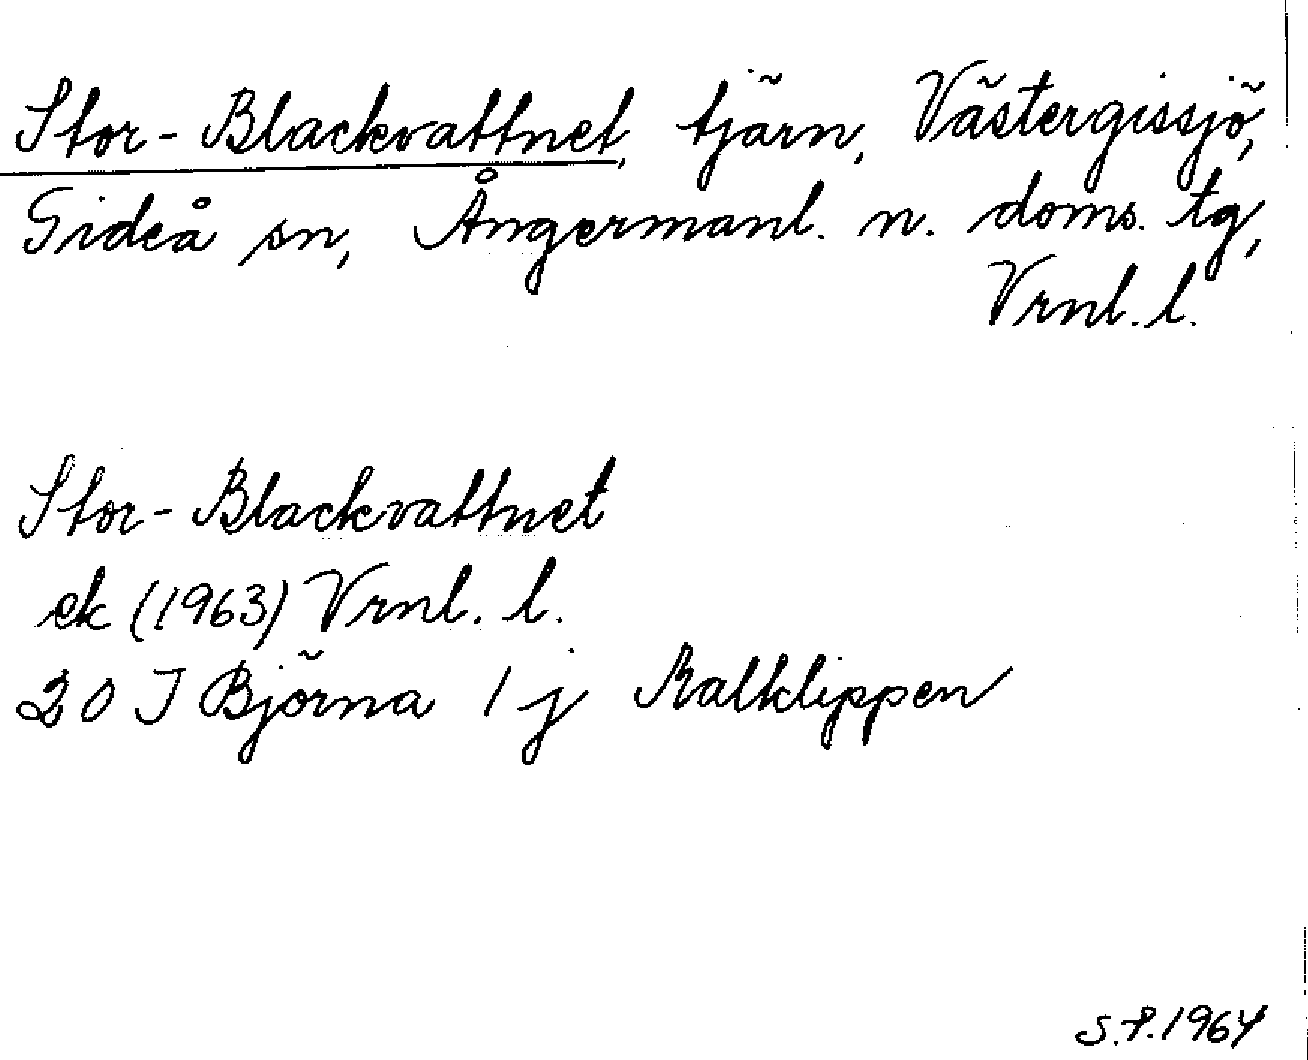 Stor-Blackvattnet, tjärn, Västergissjö,
Gideå sn, Ångermanl. n. doms. tg,
Vrnl. l.
Stor-Blackvattnet
ek (1963) Vrnl. l.
20 I Björna 1 j Kalklippen
S.P. 1964